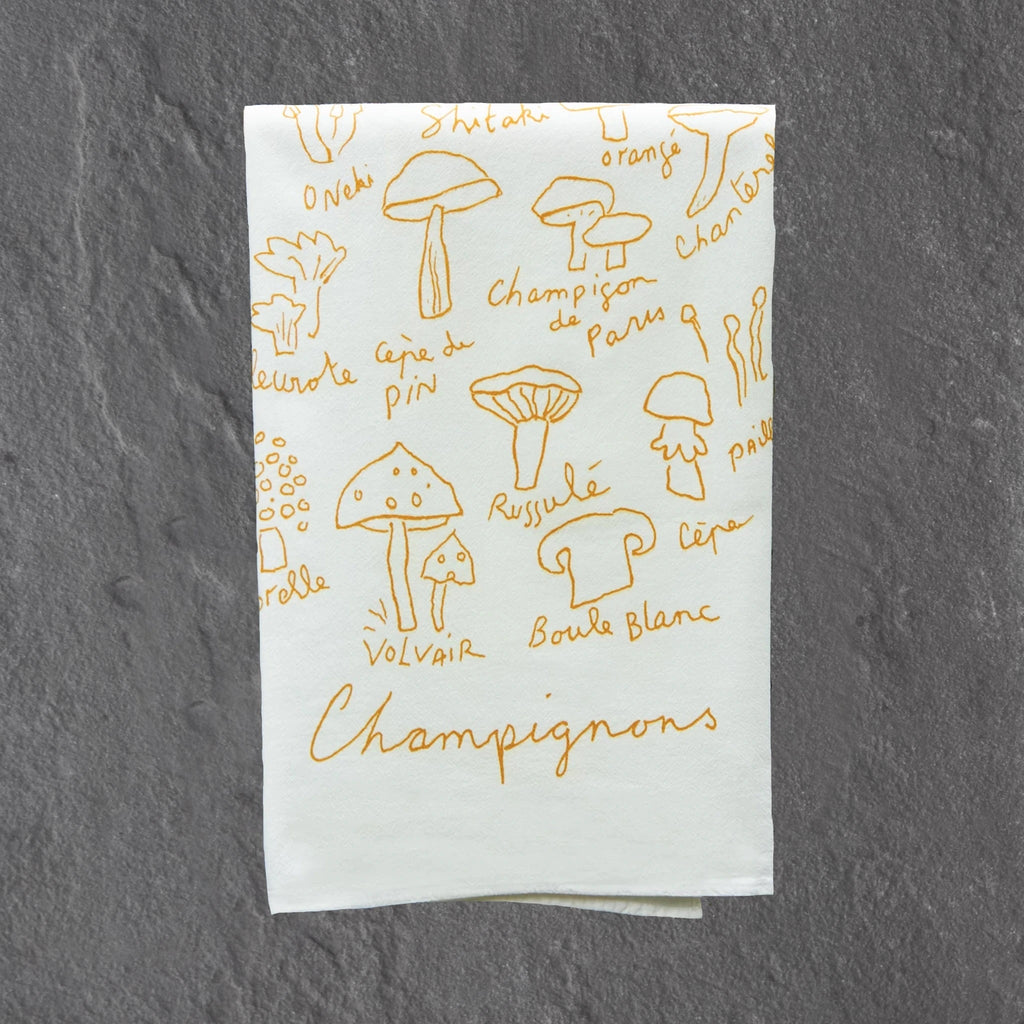 Shitaki
orangé
Oneki
Chanterel
Champigon
de Paris
leurote
Cèpe de
PIN
Paile
Russulé
Cèpe
orelle
Boule Blanc
VOLVAIR
Champignons